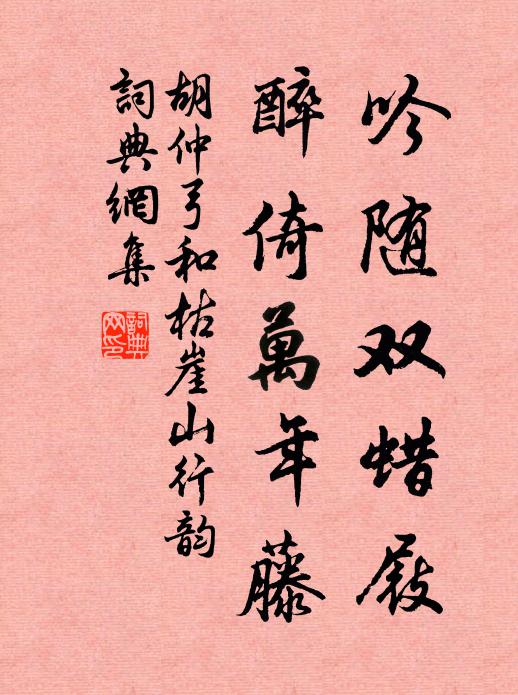 吟随双蜡屐
醉倚萬年藤
胡仲弓和枯崖山行韵
詞典網集
詞典網印